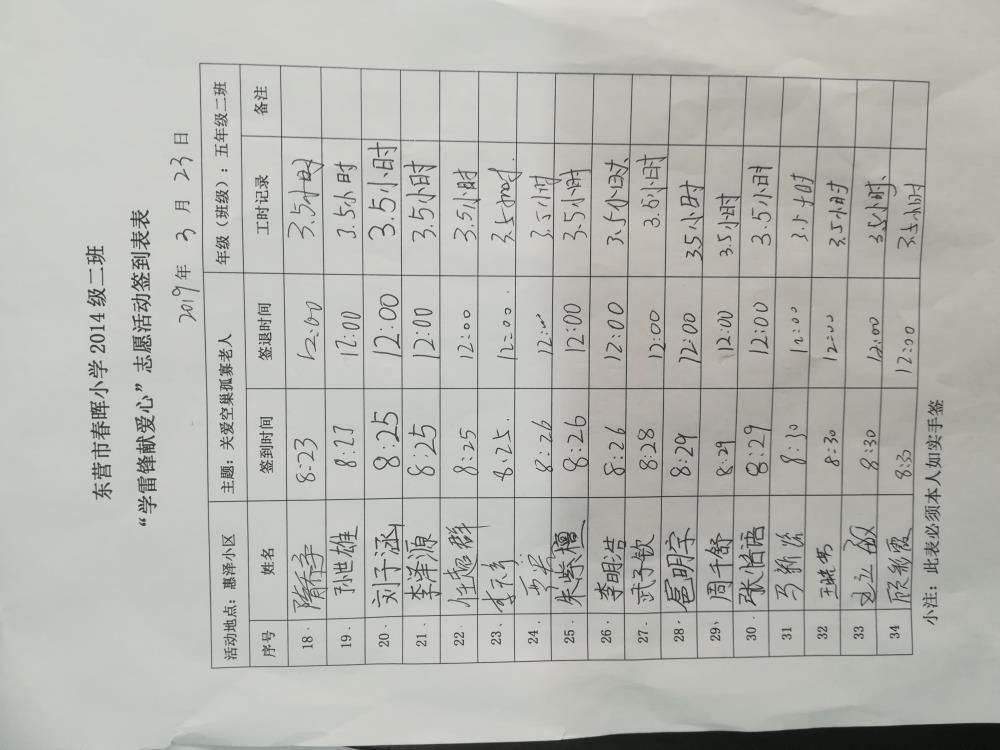 东营市春晖小学 2014 级二班
“学雷锋献爱心”志愿活动签到表表
2019年 3 月 23 日
活动地点：惠泽小区 主题：关爱空巢孤寡老人 年级（班级）：五年级二班
序号 姓名 签到时间 签退时间 工时记录 备注
18. 8:23 12:00 3.5小时
19. 孙世雄 8:23 12:00 3.5小时
20. 刘子涵 8:25 12:00 3.5小时
21. 李泽源 8:25 12:00 3.5小时
22. 任超群 8:25 12:00 3.5小时
23、 8:25. 12:00. 3.5小时.
24. 8:26 12:00 3.5小时
25. 朱紫檀 8:26 12:00 3.5小时
26. 李明浩 8:26 12:00 3.5小时、
27. 武子钦 8:28 12:00 3.5小时
28. 扈明宇 8:29 12:00 3.5小时
29、 周千舒 8:29 12:00 3.5小时
30. 张怡语 8:29 12:00 3.5小时
31 8:30 12:00 3.5小时
32 王晓 8:30 12:00 3.5小时
33 8:30 12:00 3.5小时、
34 顾彩霞 8:30 12:00 3.5小时
小注：此表必须本人如实手签